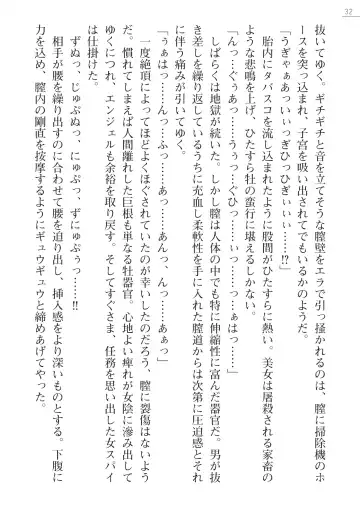 32
抜いてゆく。ギチギチと音を立てそうな膣壁をエラで引っ掻かれるのは、膣に掃除機のホ
ースを突っ込まれ、子宮を吸い出されてでもいるかのようだ。
「うぎゃぁあっいぃっぎひっひぎぃぃぃ……!?」
胎内にタバスコを流し込まれたように股間がひたすらに熱い。美女は屠殺される家畜の
ような悲鳴を上げ、ひたすら牡の蛮行に堪えるしかない。
「んっ……ぐぅあっ……うぅっ……ぐひっ……ぃっ……っ……ぁはっ……」
しばらくは地獄が続いた。しかし膣は人体の中でも特に伸縮性に富んだ器官だ。男が抜
き差しを繰り返しているうちに充血し柔軟性を手に入れた膣道からは次第に圧迫感とそれ
に伴う痛みが引いてゆく。
「うぁはっ……んっふっ……っ……あっ……あんっ、んっ……あぁっ」
一度絶頂によってほどよくほぐされていたのが幸いしたのだろう、膣に裂傷はないよう
だ。慣れてしまえば人間離れした巨根も単なる牡器官。心地よい痺れが女陰に滲み出して
ゆくにつれ、エンジェルも余裕を取り戻す。そしてすぐさま、任務を思い出した女スパイ
は仕掛けた。
ずぬっ、じゅぷぬっ、にゅぷっ、ずにゅぷぅっ……!!
相手が腰を繰り出すのに合わせて腰を迫り出し、挿入感をより深いものとする。下腹に
力を込め、膣内の剛直を按摩するようにギュウギュウと締めあげてやった。